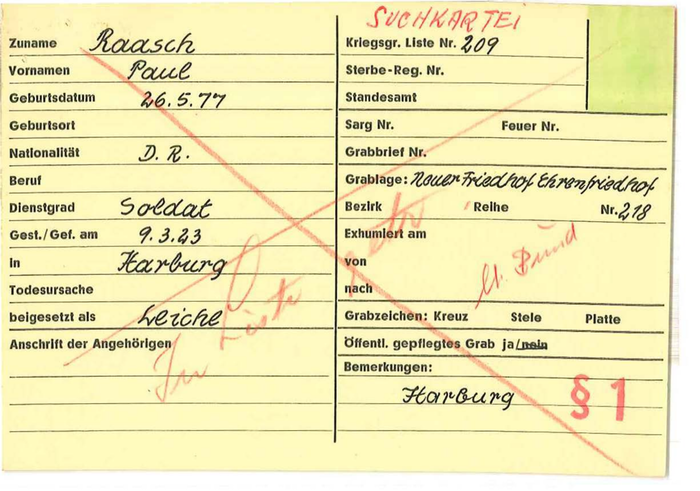 SUCHKARTEI
Zuname Raasch
Vornamen Paul
Geburtsdatum 26.5.77
Geburtsort
Nationalität D. R.
Beruf
Dienstgrad Soldat
Gest./Gef. am 9.3.23
in Harburg
Todesursache
beigesetzt als Leiche
Anschrift der Angehörigen
In Liste
Kriegsgr. Liste Nr. 209
Sterbe-Reg. Nr.
Standesamt
Sarg Nr. Feuer Nr.
Grabbrief Nr.
Grablage: Neuer Friedhof Ehrenfriedhof
Bezirk Reihe Nr. 218
Exhumiert am
von
nach
Bund
Grabzeichen: Kreuz Stele Platte
Öffentl. gepflegtes Grab ja/nein
Bemerkungen:
Harburg
§ 1